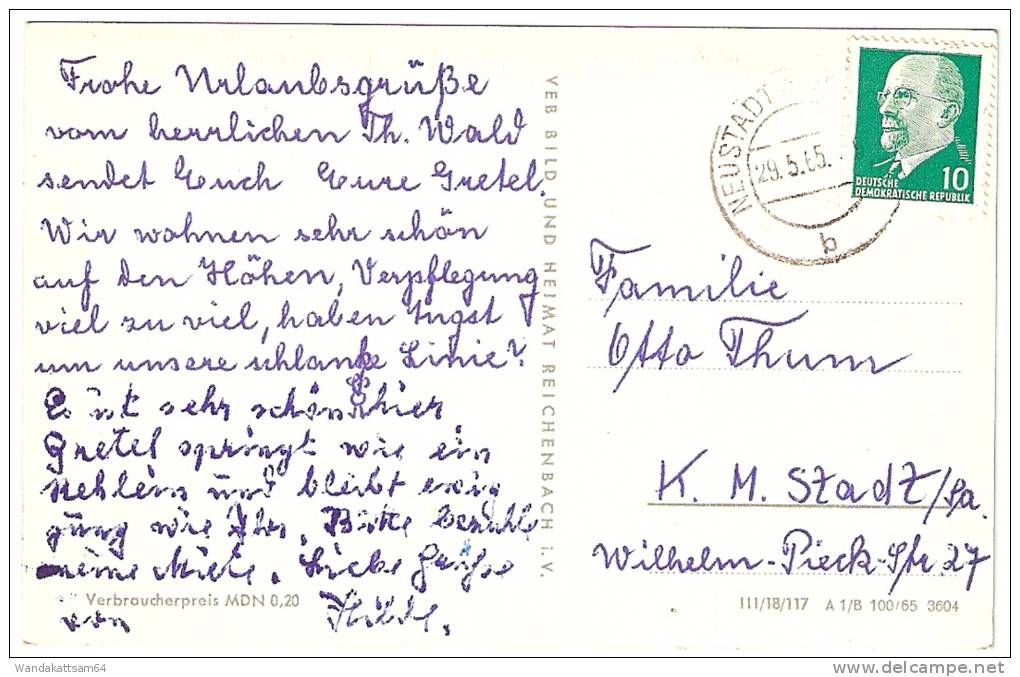 Frohe Urlaubsgrüße
vom herrlichen Th. Wald
sendet Euch Eure Gretel.
Wir wohnen sehr schön
auf den Höhen, Verpflegung
viel zu viel, haben Angst
um unsere schlanke Linie?
Es ist sehr schön hier
Gretel springt wie ein
und bleibt ewig
wie Ihr. Bitte bezahlt
meine Miete. Liebe Grüße
von Hilde.
Verbraucherpreis MDN 0,20
VEB BILD UND HEIMAT REICHENBACH i. V.
NEUSTADT
29.5.65.
b
DEUTSCHE
DEMOKRATISCHE REPUBLIK
10
Familie
Otto Thum
K. M. Stadt/Sa.
Wilhelm-Pieck-Str. 27
III/18/117 A 1/B 100/65 3604
Wandakattsam64